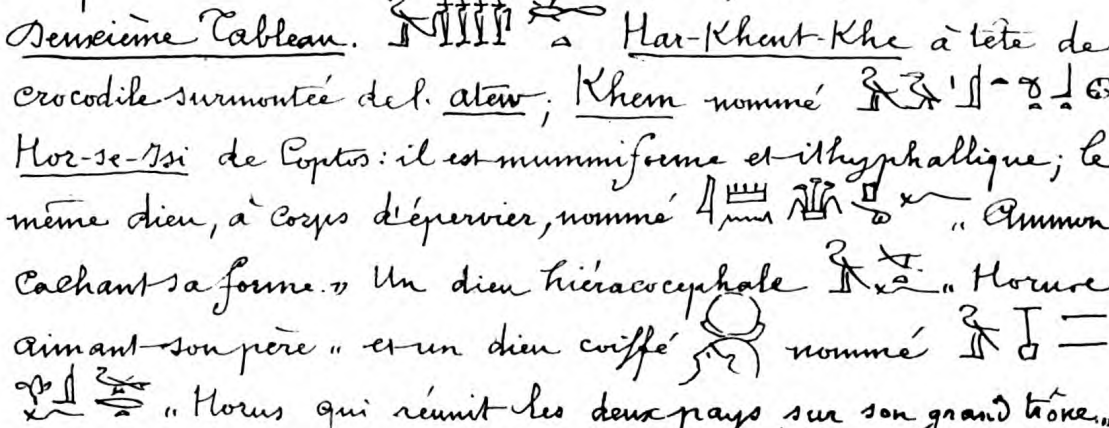 Deuxième Tableau. Har-Khent-Khe à tête de
crocodile surmontée de l. atew; Khem nommé
Hor-se-Isi de Coptos: il est mummiforme et ithyphallique; le
même dieu, à corps d'épervier, nommé „ Ammon
cachant sa forme." Un dieu hiéracocéphale „ Horus
aimant son père „ et un dieu coiffé nommé
„ Horus qui réunit les deux pays sur son grand trône.„